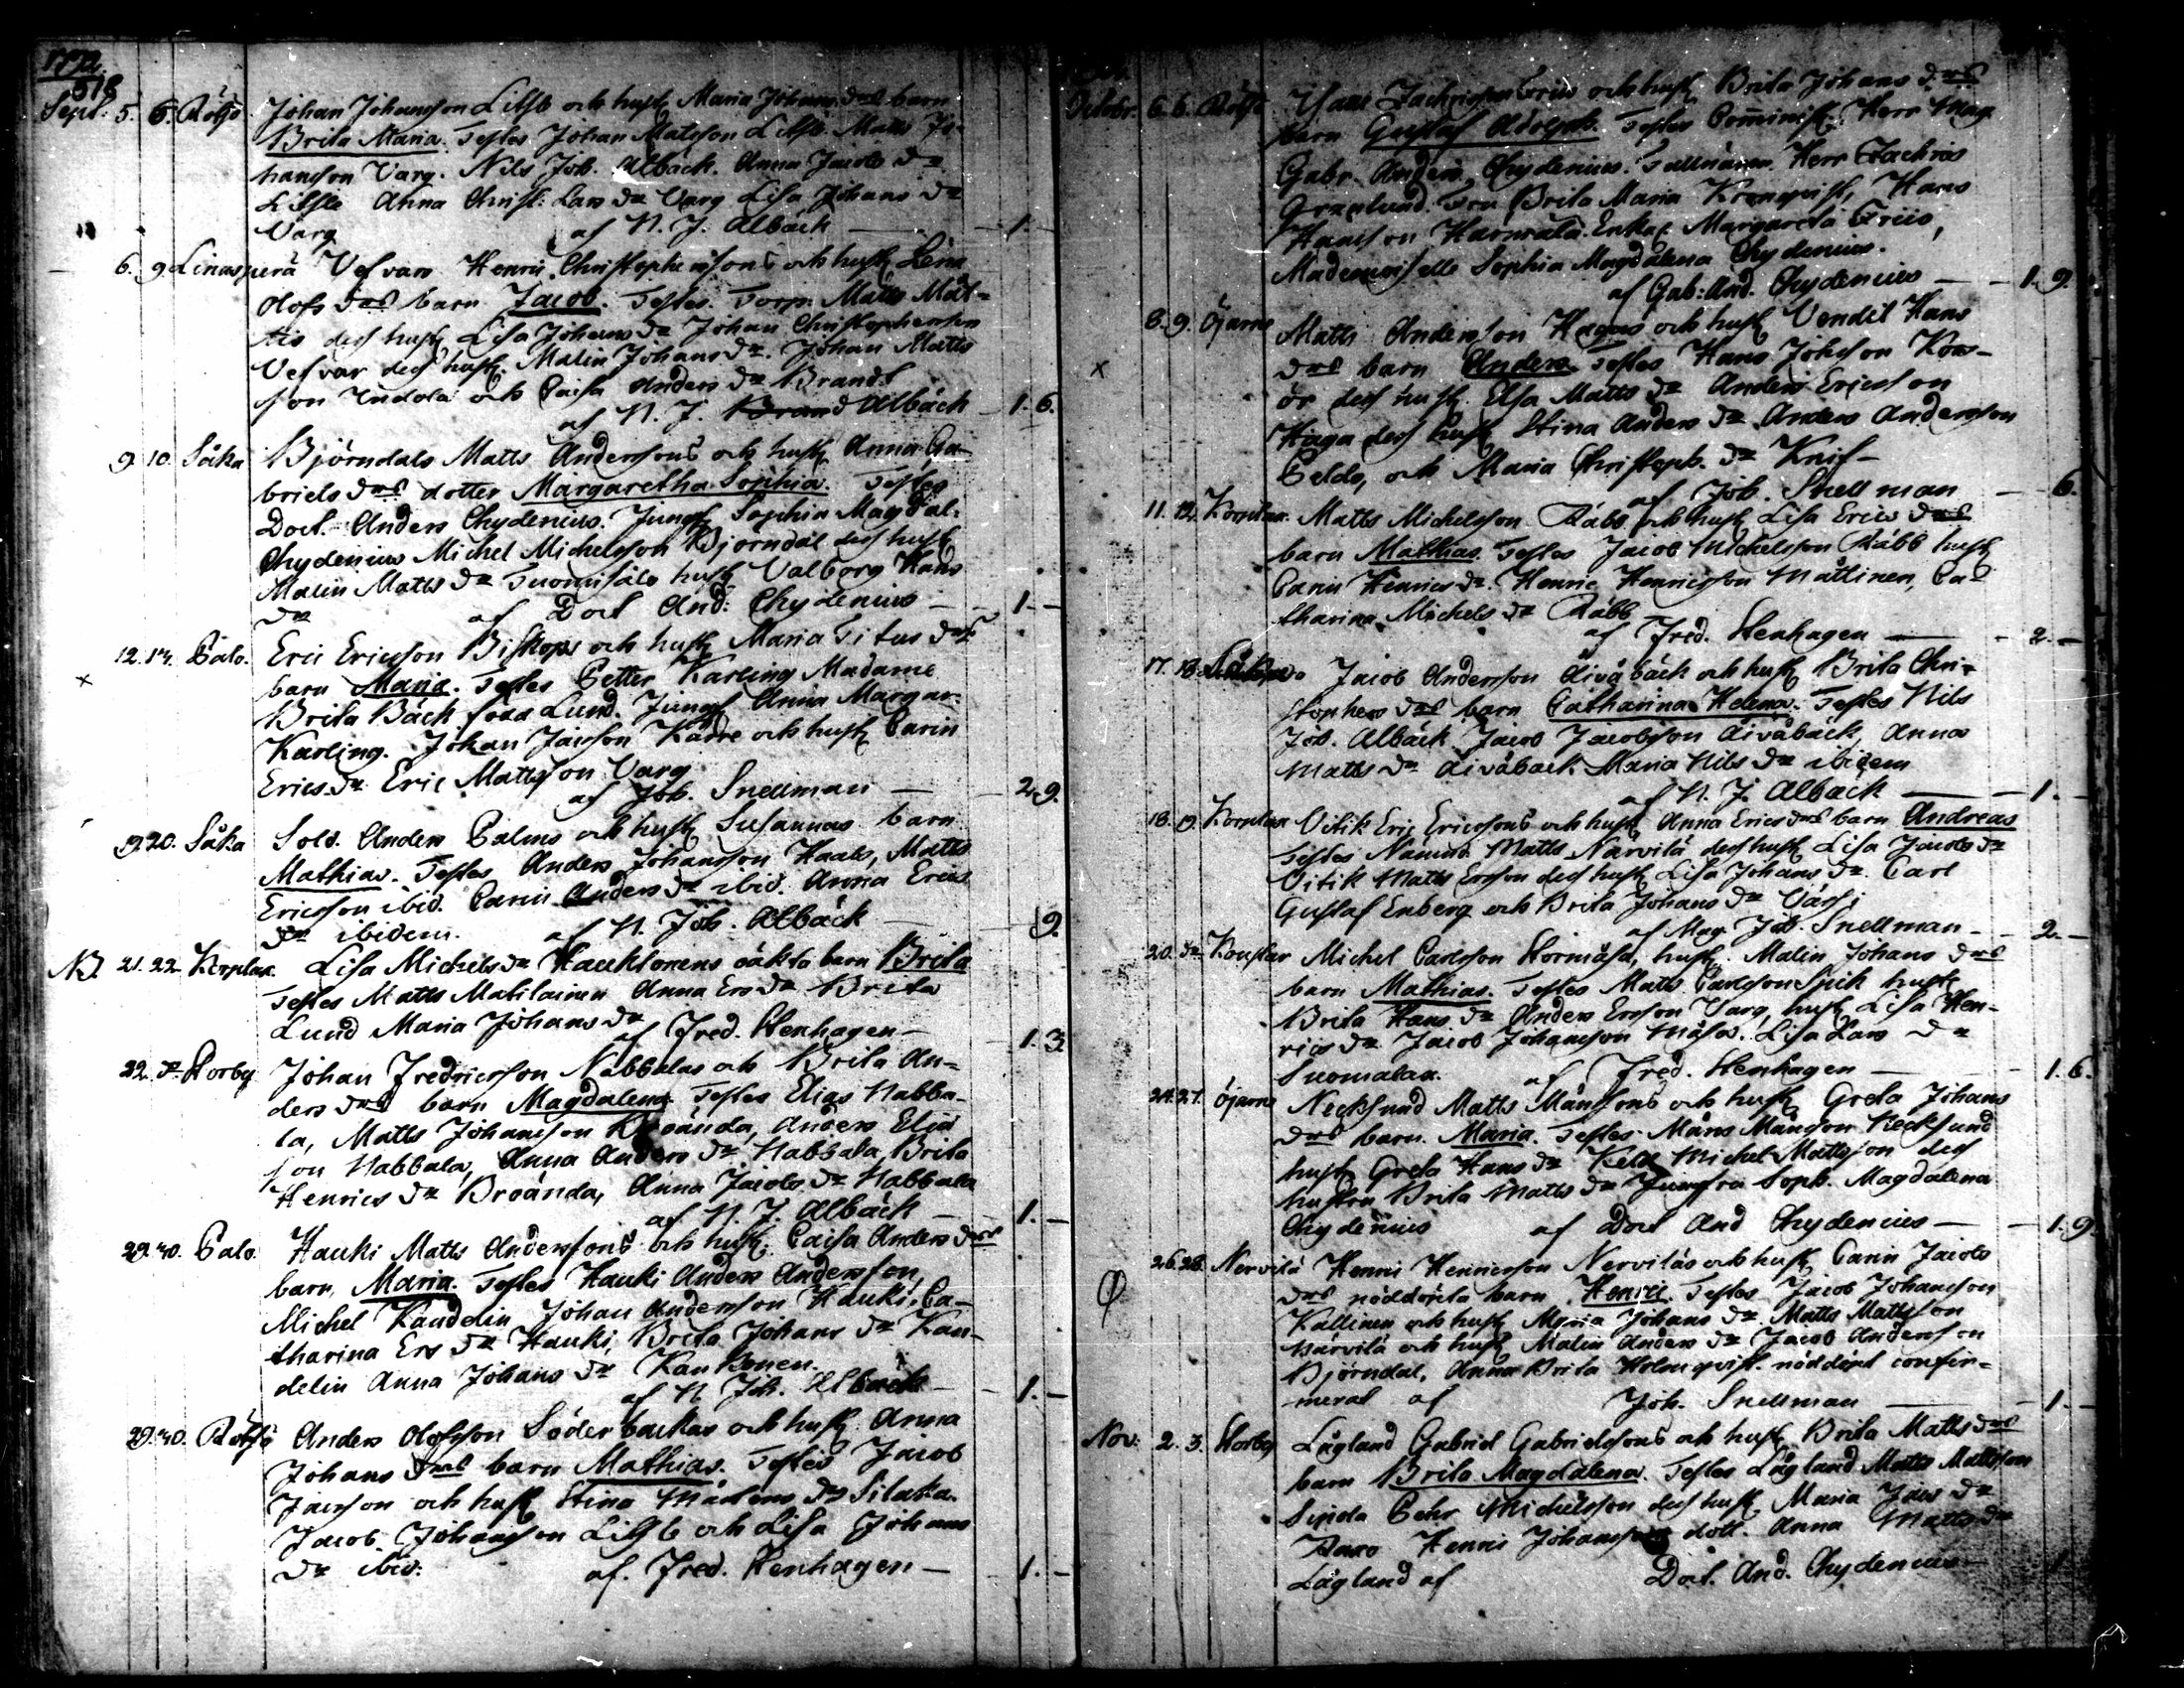 1792.
518
Sept. 5. 6. Rötsö Johan Johansson Lilsle och hust. Maria Johans drs barn
Brita Maria. Testes Johan Matsson Lilsle. Matts Jo-
hansson Varg. Nils Joh. Albäck. Anna Jacobs dr
Lilsle Anna Christ: Lars dr Varg Lisa Johans dr
Varg af N. J. Albäck — 1.—
6. 9. Linasperä Vesvars Henric Christophersons och hust. Lena
Olofs drs barn Jacob. Testes Torp. Matts Mat-
tis dess hust. Lisa Johans dr Johan Christophersson
Vesvar dess hust. Malin Johans dr. Johan Matts
son Indola och Caisa Anders dr Brandt
af N. J. Albäck — 1. 6.
9. 10. Såka Björndals Matts Anderssons och hust. Anna Ga-
briels drs dotter Margaretha Sophia. Testes
Doct. Anders Chydenius. Jungf. Sophia Magdal.
Chydenius Michel Michelsson Björndal dess hust.
Malin Matts dr Tuomisalo hust. Valborg Hans
dr af Doct And: Chydenius — 1.—
12. 14. Palo. Eric Ericsson Biskops och hust. Maria Titus drs
barn Maria. Testes Petter Karling Madame
Brita Bäck född Lund. Jungf. Anna Margar.
Karling. Johan Jacsson Kådre och hust. Carin
Erics dr Eric Mattsson Varg
af Joh. Snellman — 2. 9.
19. 20. Såka Sold. Anders Palms och hust. Susannas barn
Mathias. Testes Anders Johansson Haals, Matts
Ericsson ibid. Carin Anders dr ibid. Anna Erics
dr ibidem. af N. Joh. Albäck — 9.
NB. 21. 22. Korplax. Lisa Michels dr Hauktonens oäkta barn Brita
Testes Matts Matilainen Anna Ers dr Brita
Lund Maria Johans dr
af Fred. Stenhagen — 1. 3.
22. dr Storby Johan Fredricsson Nabbalas och Brita An-
ders drs barn Magdalena Testes Elias Nabba-
la, Matts Johansson Broända, Anders Elias
son Nabbala, Anna Anders dr Nabbala, Brita
Henrics dr Broända, Anna Jacobs dr Nabbala
af N. J. Albäck — 1.—
29. 30. Palo. Hauki Matts Anderssons och hust. Caisa Anders drs
barn, Maria. Testes Hauki Anders Andersson,
Michel Kandelin Johan Andersson Hauki, Ca-
tharina Ers dr Hauki, Brita Johans dr Kan-
delin Anna Johans dr Kaukonen.
af N. Joh. Albäck — 1.—
29. 30. Rötsö Anders Olofsson Söderbackas och hust. Anna
Johans drs barn Mathias. Testes Jacob
Jacsson och hust. Stina Mårtens dr Silaka.
Jacob Johansson Lilsle och Lisa Johans
dr ibid: af. Fred. Stenhagen — 1.—
Octobr. 6. 6. Rötsö Isaac Zachrisson Friis och hust. Brita Johans drs
barn Gustaf Adolph. Testes Comminist. Herr Mag.
Gabr. Anders Chydenius. Tullnären Herr Zachris
Granlund. Fru Brita Maria Kronqvist, Hans
Hansson Harmåla. Enkan Margareta Friis,
Mademoiselle Sophia Magdalena Chydenius.
af Gab: And. Chydenius — 1. 9.
8. 9. Öjarne Matts Andersson Hagas och hust. Vendil Hans
drs barn Anders Testes Hans Johsson Kors-
ör dess hust. Elsa Matts dr Anders Ericsson
Haga dess hust. Stina Anders dr Anders Andersson
Peldo, och Maria Christoph. dr Knif-
af Joh. Snellman — 6.
11. 12. Korplax. Matts Michelsson Råbb och hust. Lisa Erics drs
barn Mathias. Testes Jacob Michelsson Råbb hust.
Carin Henrics dr. Henric Henricsson Mattinen, Ca-
tharina Michels dr Råbb
af Fred. Stenhagen — 2.—
17. 18. Jacob Andersson Aivåbäck och hust. Brita Chri-
stophers drs barn Catharina Helena. Testes Nils
Joh. Albäck Jacob Jacobsson Aivåbäck, Anna
Matts dr Aivåbäck Maria Nils dr ibidem
af N. J. Albäck — 1.—
18. 19. Korplax Vitik Eric Ericssons och hust. Anna Erics drs barn Andreas
Testes Nämnd. Matts Narvilä dess hust. Lisa Jacobs dr
Vitik Matts Ersson dess hust. Lisa Johans dr. Carl
Gustaf Enberg och Brita Johans dr
af Mag. Joh. Snellman — 2.—
20. dr Korplax Michel Carlsson Stormåsa, hust. Malin Johans drs
barn Mathias. Testes Matts Carlsson Spik hust.
Brita Hans dr Anders Ersson Varg, hust. Lisa Hen-
rics dr Jacob Johansson Måsa. Lisa Lars dr
Suomalax. af Fred. Stenhagen — 1. 6.
24. 27. Öjarne Necksund Matts Månssons och hust. Greta Johans
drs barn Maria. Testes Måns Månsson Necksund
hust. Greta Hans dr Michel Mattsson dess
hustru Brita Matts dr Jungfru Soph. Magdalena
Chydenius af Doct And Chydenius — 1. 9.
26. 28. Nervilä Henric Henricsson Nervilas och hust. Carin Jacobs
drs nöddöpta barn Henric. Testes Jacob Johansson
Källinen och hust. Maria Johans dr. Matts Mattsson
Närvilä och hust. Malin Anders dr Jacob Andersson
Björndal, Anna Brita Holmqvist. nöddöpt confir-
merat af Joh. Snellman — 1.—
Nov. 2. 3. Storby Lågland Gabriel Gabrielssons och hust. Brita Matts drs
barn Brita Magdalena. Testes Lågland Matts Mattsson
Sipola Pehr Michelsson dess hust. Maria Jacs dr
Henric Johansson dott. Anna Matts dr
Lågland af Doct. And. Chydenius — 1